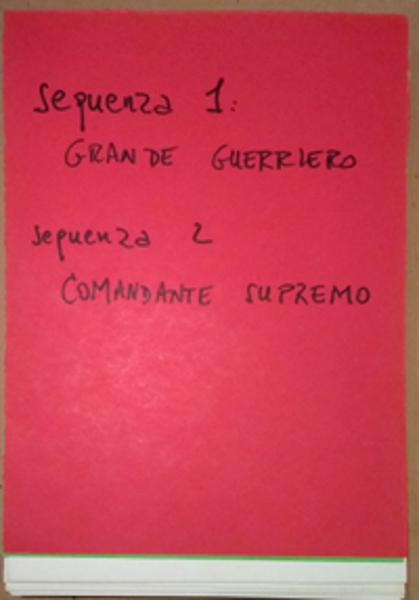 sequenza 1:
GRANDE GUERRIERO
sequenza 2
COMANDANTE SUPREMO